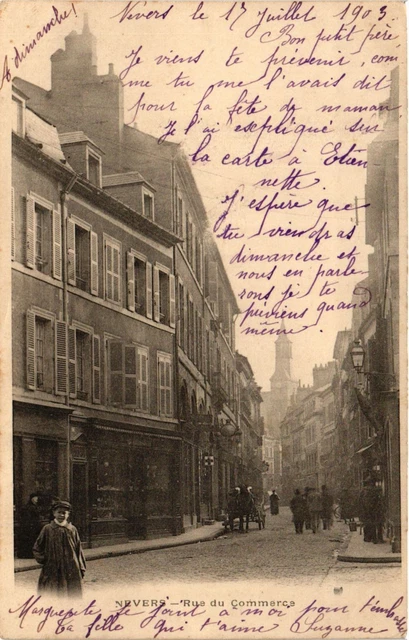 (dimanche)
Nevers le 17 Juillet 1903.
Bon petit père
Je viens te prévenir, com
me tu me l'avais dit
pour la fête de maman
Je l'ai expliqué sur
la carte à Etien
nette.
J'espère que
tu viendras
dimanche et
nous en parle
rons je te
préviens quand
même.
NEVERS - Rue du Commerce
Marguerite se joint à moi pour t'embrasser
Ta fille qui t'aime Suzanne